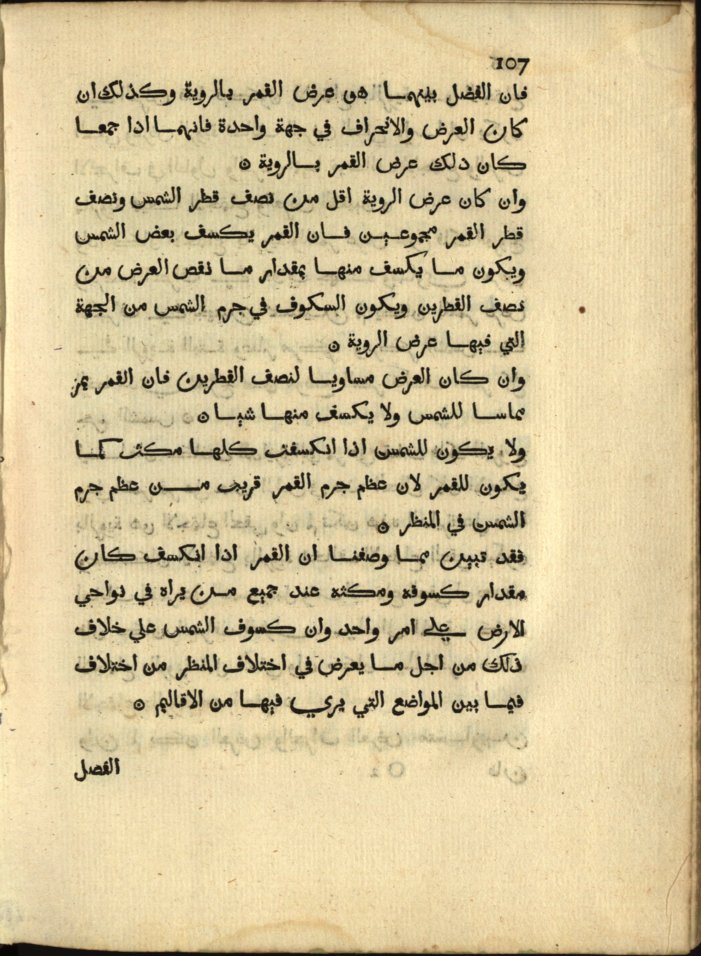 107
فان الفضل بينهما هو عرض القمر بالروية وكذلك ان
كان العرض والانحراف في جهة واحدة فانهما اذا جمعا
كان دلك عرض القمر بالروية ه
وان كان عرض الروية اقل من نصف قطر الشمس ونصف
قطر القمر مجموعين فان القمر يكسف بعض الشمس
ويكون ما يكسف منها بمقدار ما نقص العرض من
نصف القطرين ويكون السكوف في جرم الشمس من الجهة
التي فيها عرض الروية ه
وان كان العرض مساويا لنصف القطرين فان القمر يمر
مماسا للشمس ولا يكسف منها شيا ه
ولا يكون للشمس اذا انكسفت كلها مكث كما
يكون للقمر لان عظم جرم القمر قريب من عظم جرم
الشمس في المنظر ه
فقد تبين مما وصفنا ان القمر اذا انكسف كان
مقدار كسوفه ومكثه عند جميع من يراه في نواحي
الارض علي امر واحد وان كسوف الشمس علي خلاف
ذلك من اجل ما يعرض في اختلاف المنظر من اختلاف
فيما بين المواضع التي يري فيها من الاقاليم ه
الفصل